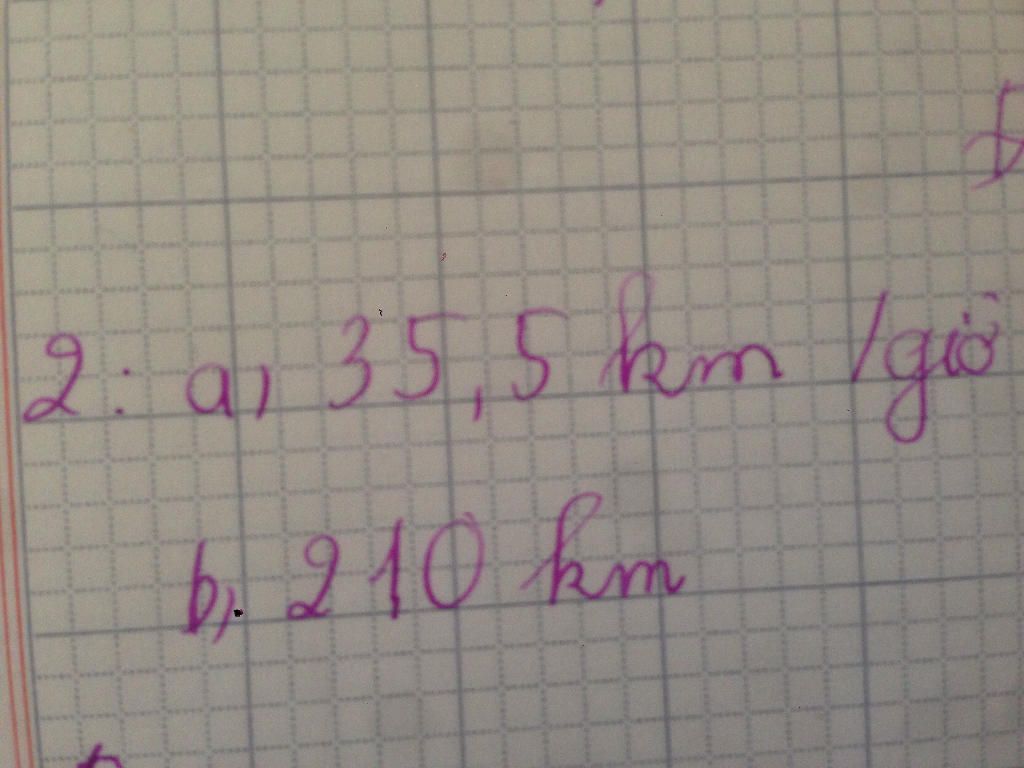 2: a, 35,5 km /giờ
b, 210 km